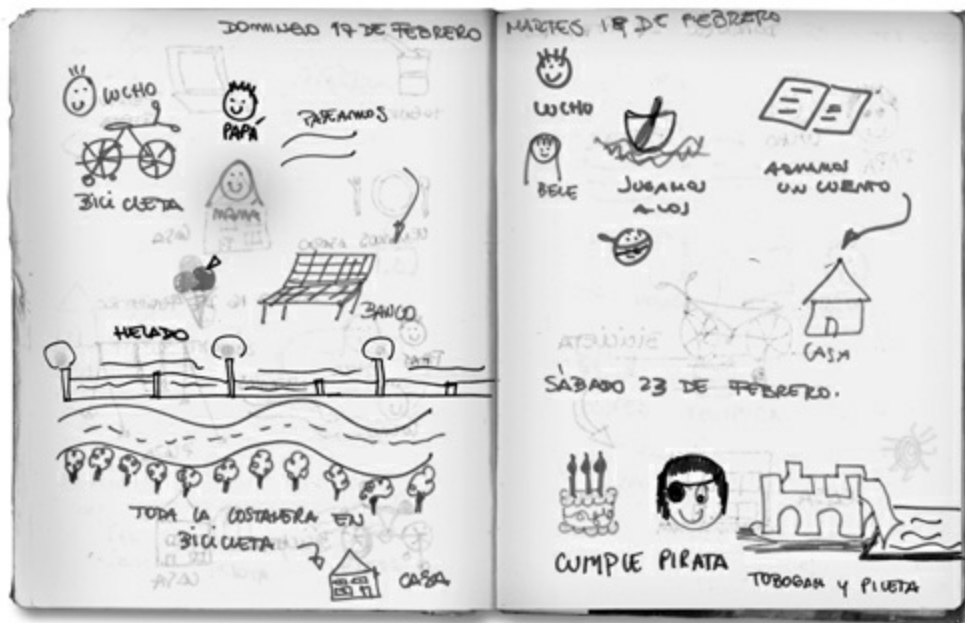 DOMINGO 17 DE FEBRERO
LUCHO
PAPÁ
PASEAMOS
BICICLETA
MAMA
BANCO
HELADO
TODA LA COSTANERA EN
BICICLETA
CASA
MARTES 19 DE FEBRERO
LUCHO
BELE
JUGAMOS
A LOS
UN CUENTO
CASA
SÁBADO 23 DE FEBRERO.
CUMPLE PIRATA
TOBOGAN Y PILETA